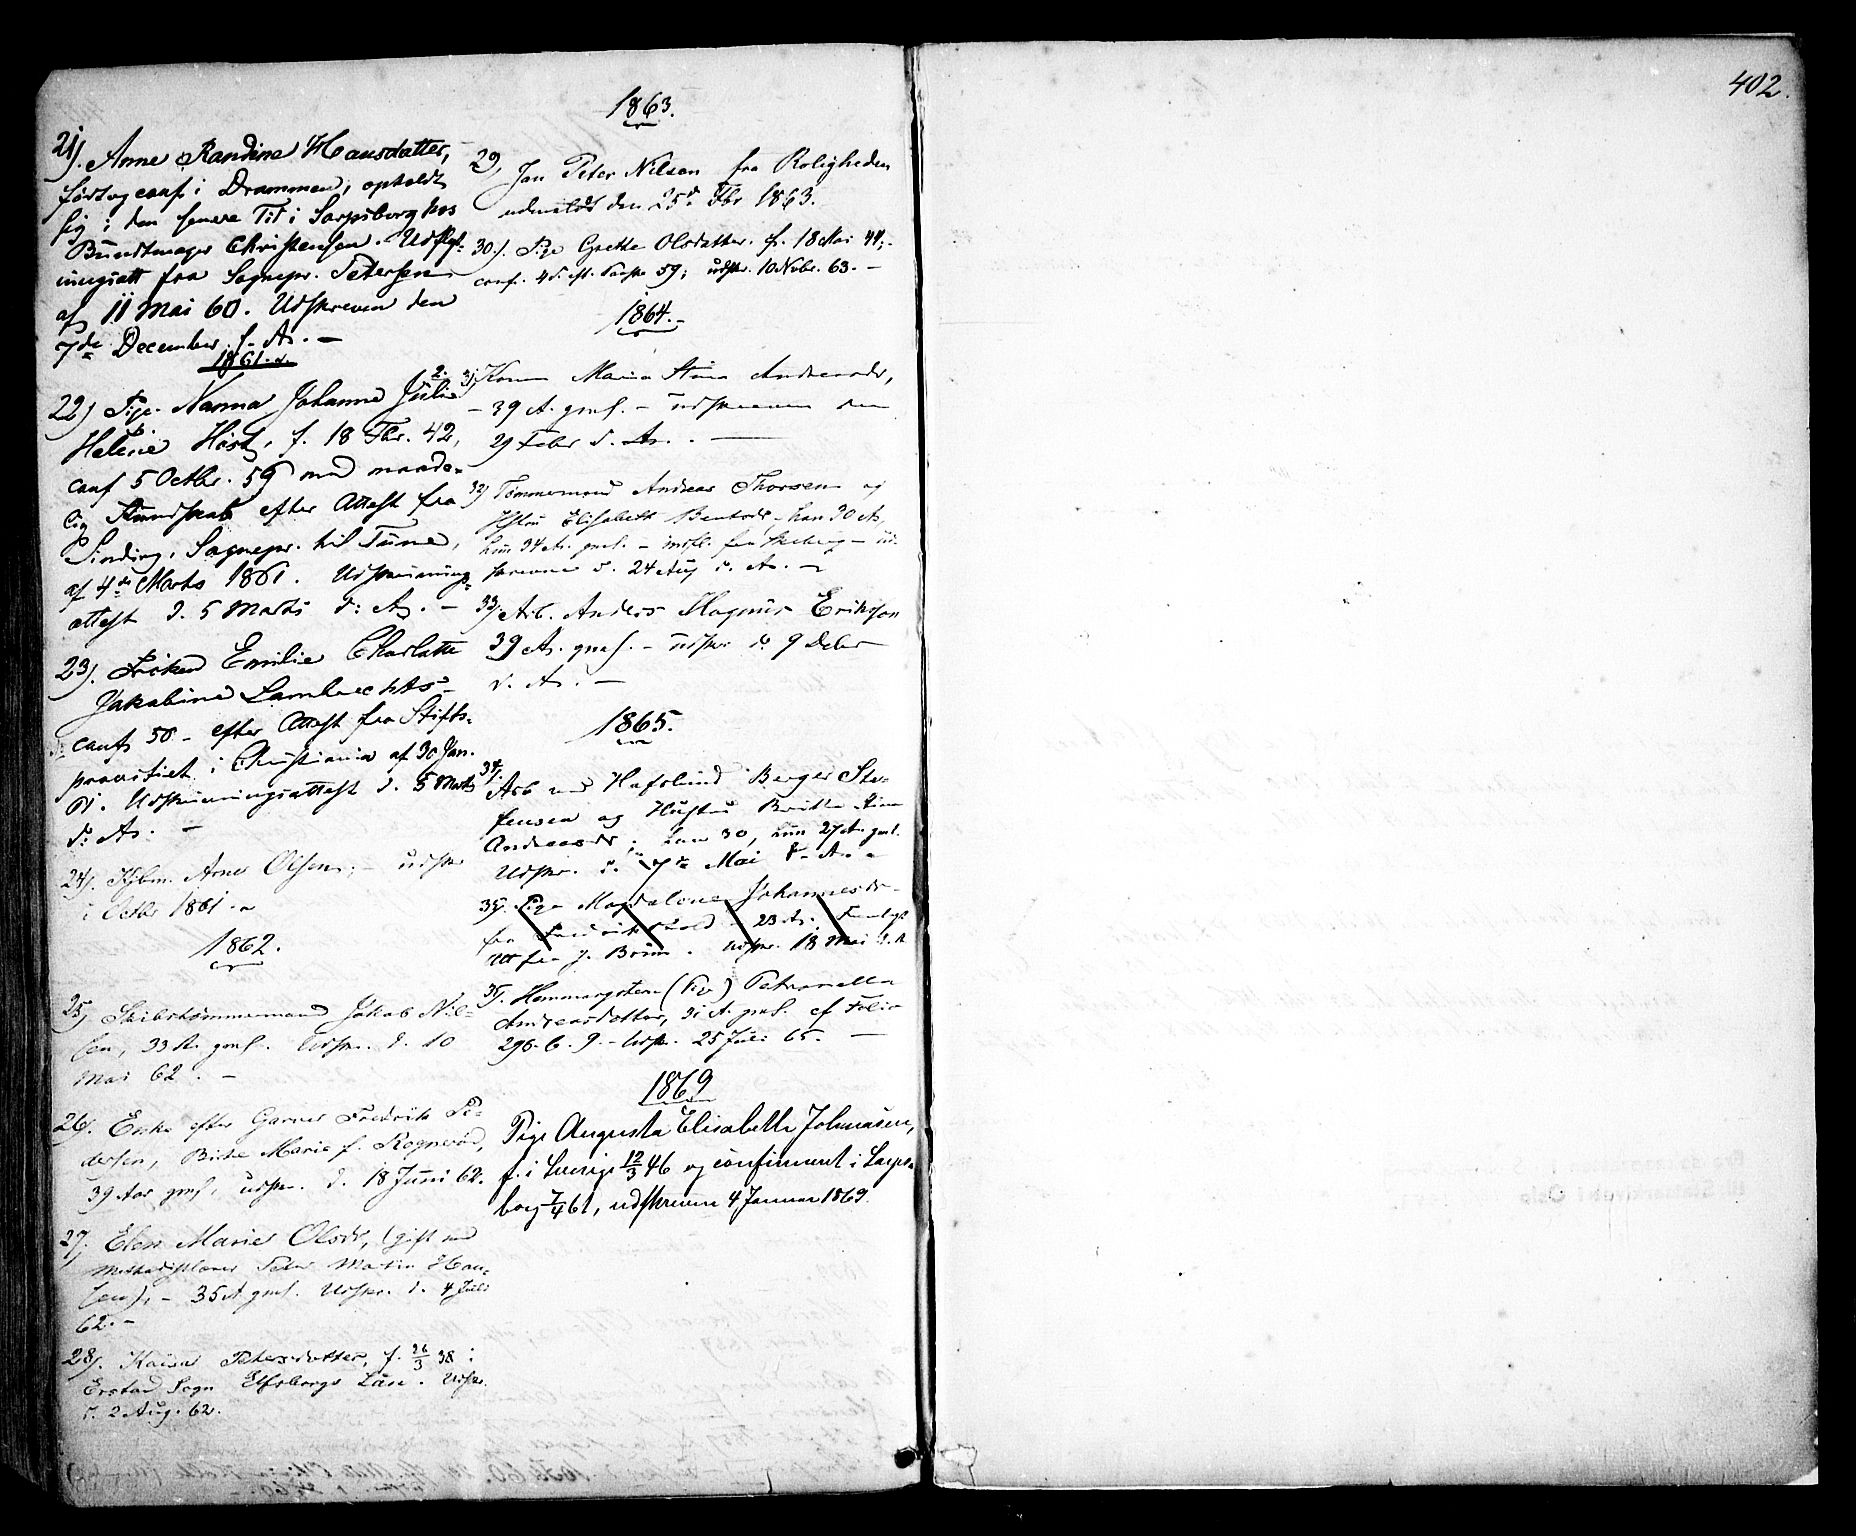 402.
21). Anne Randine Hansdatter,
født og conf. i Drammen, opholdt
sig i den senere Tid i Sarpsborg hos
Bundtmager Christensen. Udskriv-
ningsatt fra Sognepr. Petersen
af 11 Mai 60. Udskreven den
7de December s. A. —
1861.
22) Pige Nanna Johanne Julie
Helene Høst, f. 18 Fbr. 42,
conf 5 Octbr. 59 med maade-
lig Kundskab efter Attest fra
Sinding, Sognepr. til Tune,
af 4de Marts 1861. Udskrivnings-
attest d. 5 Marts d: A. —
23). Frøken Emilie Charlotte
Jakobine Lambrechts -
conf. 50 - efter Attest fra Stifts-
provstiet i Christiania af 30 Jan.
61. Udskrivningsattest d. 5 Marts
d: A. —
24). Arne Olsen; - udskr
i Octbr 1861.
1862.
25) Skibstømmermand Jakob Niel-
sen, 33 A. gml. Udskr. d. 10
Mai 62. —
26). Enke efter Garver Fredrik Pe-
dersen, Marie f.
39 Aar gml, udskr. d. 18 Juni 62.
27. Elen Marie Olsdr, (gift med
Peter Martin Han-
sen), - 35 A gml. Udskr. d. 4 Juli
62. —
28). Kaisa Petersdatter, f. 26/3 38 i
Erstad Sogn Elfsborgs Län. Udskr.
d. 2 Aug. 62.
1863.
29, Jan Peter Nilsen fra Roligheden
udmeldt den 25de Fbr 1863.
30.) Pige Grethe Olsdatter. f. 18 Mai 44;
conf. 4 S. e. Paaske 59; udskr. 10 Nvbr. 63. —
1864.
31) Kone Maria Stina Andreasdr,
- 39 A. gml. - udskreven den
29 Febr d. A. —
32) Tømmermand Andreas Thorsen og
Hustru Elisabeth Bentsdr, - han 30 A,
hun 34 A. gml. - indfl. fra Skeberg - ud-
skrevne d. 24 Aug d. A. —
33) Arb. Anders Magnus Eriksson
39 A. gml. - udskr d. 9 Decbr
d. A. —
1865.
34) Arb ved Hafslund Berger Ste-
fensen og Hustru Britta
Andreasdr; han 30, hun 27 A. gml.
Udskr. d. 7de Mai d. A.
35). Pige Magdalene Johannesdr -
fra Fredrikshald - 23 A;
Att fra J. Bruun. Udskr. 18 Mai d. A
35). (Pige) Petronella
Andreasdatter, 31 A. gml. cf Folio
296. b. 9. - Udskr. 25 Juli 65. —
1869
Pige Augusta Elisabeth Johnasen,
f. i Sverige 12/3 46 og confirmeret i Sarps-
borg 7/4 61, udskreven 4 Januar 1869.